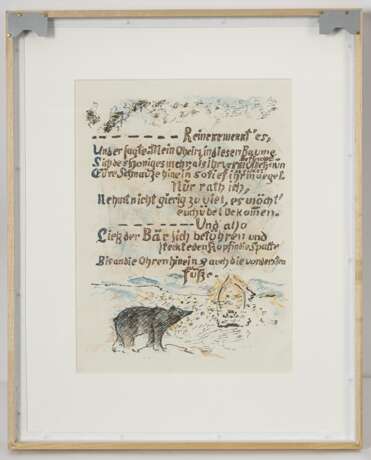 Reineke merkt' es,
Und er sagte: Mein Oheim, in diesem Baume
Sind des Honiges mehr als Ihr vermuthet
Eure Schnauze hinein so tief ihr mögt.
Nur rath ich,
Nehmt nicht gierig zu viel, es möcht'
euch übel bekomen.
Und also
Ließ der Bär sich bethören und
steckte den Kopf in die Spalte
Bis an die Ohren hinein & auch die vordersten
Füße.